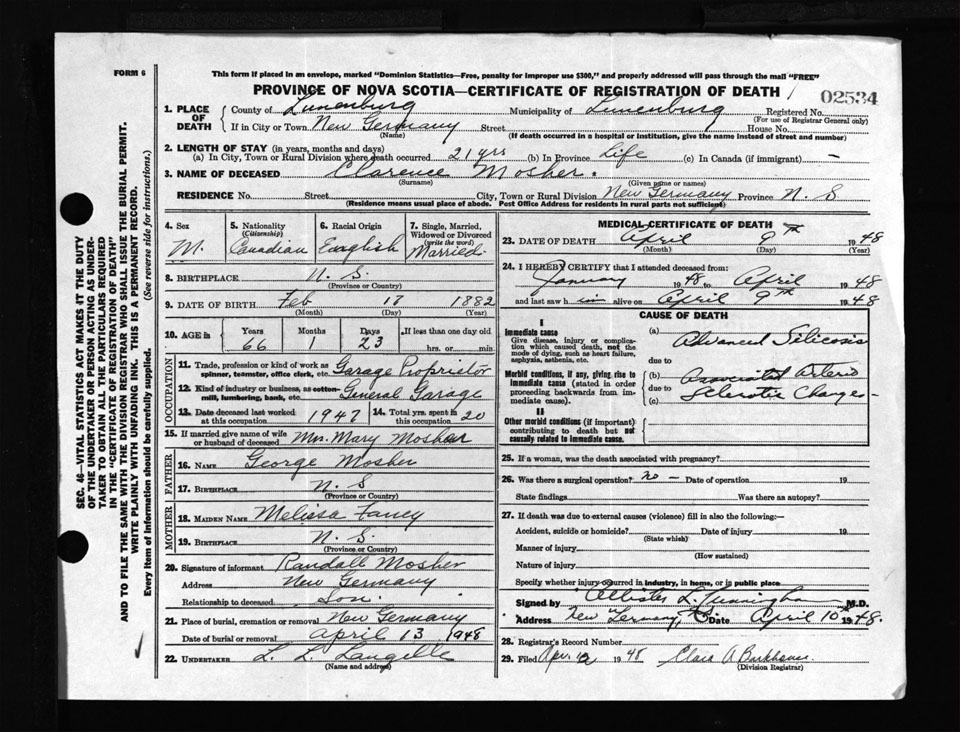 FORM 6
This form if placed in an envelope, marked "Dominion Statistics—Free, penalty for improper use $300," and properly addressed will pass through the mail "FREE"
PROVINCE OF NOVA SCOTIA—CERTIFICATE OF REGISTRATION OF DEATH
02534
1. PLACE OF DEATH
County of Lunenburg Municipality of Lunenburg Registered No.
(For use of Registrar General only)
If in City or Town New Germany Street House No.
(Name) (If death occurred in a hospital or institution, give the name instead of street and number)
2. LENGTH OF STAY (in years, months and days)
(a) In City, Town or Rural Division where death occurred 21 yrs (b) In Province Life (c) In Canada (if immigrant) —
3. NAME OF DECEASED Clarence Mosher.
(Surname) (Given name or names)
RESIDENCE No. Street City, Town or Rural Division New Germany Province N. S
(Residence means usual place of abode. Post Office Address for residents in rural parts not sufficient)
4. Sex M.
5. Nationality (Citizenship) Canadian
6. Racial Origin English
7. Single, Married, Widowed or Divorced (write the word) Married.
8. BIRTHPLACE N. S.
(Province or Country)
9. DATE OF BIRTH Feb 17 1882
(Month) (Day) (Year)
10. AGE in Years 66 Months 1 Days 23 If less than one day old hrs. or min.
OCCUPATION
11. Trade, profession or kind of work as spinner, teamster, office clerk, etc. Garage Proprietor
12. Kind of industry or business, as cotton-mill, lumbering, bank, etc. General Garage
13. Date deceased last worked at this occupation 1947 14. Total yrs. spent in this occupation 20
15. If married give name of wife or husband of deceased Mrs. Mary Mosher
FATHER
16. NAME George Mosher
17. BIRTHPLACE N. S
(Province or Country)
MOTHER
18. MAIDEN NAME Melissa Fancy
19. BIRTHPLACE N. S.
(Province or Country)
20. Signature of informant Randall Mosher
Address New Germany
Relationship to deceased Son.
21. Place of burial, cremation or removal New Germany
Date of burial or removal April 13 1948
22. UNDERTAKER L. L. Langille
(Name and address)
MEDICAL CERTIFICATE OF DEATH
23. DATE OF DEATH April 9th 1948
(Month) (Day) (Year)
24. I HEREBY CERTIFY that I attended deceased from:
January 1948 to April 1948
and last saw him alive on April 9th 1948
CAUSE OF DEATH
I
Immediate cause
Give disease, injury or complication which caused death, not the mode of dying, such as heart failure, asphyxia, asthenia, etc.
(a) Advanced Silicosis
due to
Morbid conditions, if any, giving rise to immediate cause (stated in order proceeding backwards from immediate cause).
(b) Associated Arterio
due to
(c) Sclerotic Changes
II
Other morbid conditions (if important) contributing to death but not causally related to immediate cause.
25. If a woman, was the death associated with pregnancy?
26. Was there a surgical operation? no — Date of operation 19
State findings Was there an autopsy?
27. If death was due to external causes (violence) fill in also the following:—
Accident, suicide or homicide? Date of injury 19
(State which)
Manner of injury
(How sustained)
Nature of injury
Specify whether injury occurred in industry, in home, or in public place
Signed by L. Cunningham M.D.
Address New Germany, Date April 10th 1948.
28. Registrar's Record Number
29. Filed Apr. 1948 Clara A Barkhouse.
(Division Registrar)
SEC. 46—VITAL STATISTICS ACT MAKES IT THE DUTY
OF THE UNDERTAKER OR PERSON ACTING AS UNDER-
TAKER TO OBTAIN ALL THE PARTICULARS REQUIRED
IN THE "CERTIFICATE OF REGISTRATION OF DEATH"
AND TO FILE THE SAME WITH THE DIVISION REGISTRAR WHO SHALL ISSUE THE BURIAL PERMIT.
WRITE PLAINLY WITH UNFADING INK. THIS IS A PERMANENT RECORD.
Every item of information should be carefully supplied. (See reverse side for instructions.)